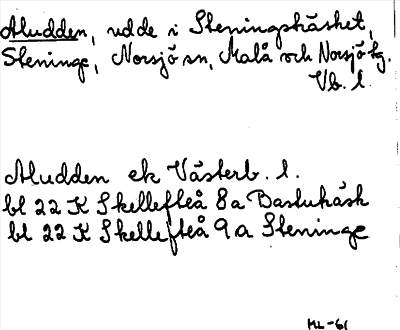 Aludden, udde i Steningskäsket,
Steninge, Norsjö sn, Malå och Norsjö tg.
Vb. l.
Aludden ek Västerb. l.
bl 22 K Skellefteå 8a Bastukäsk
bl 22 K Skellefteå 9a Steninge
ML-61